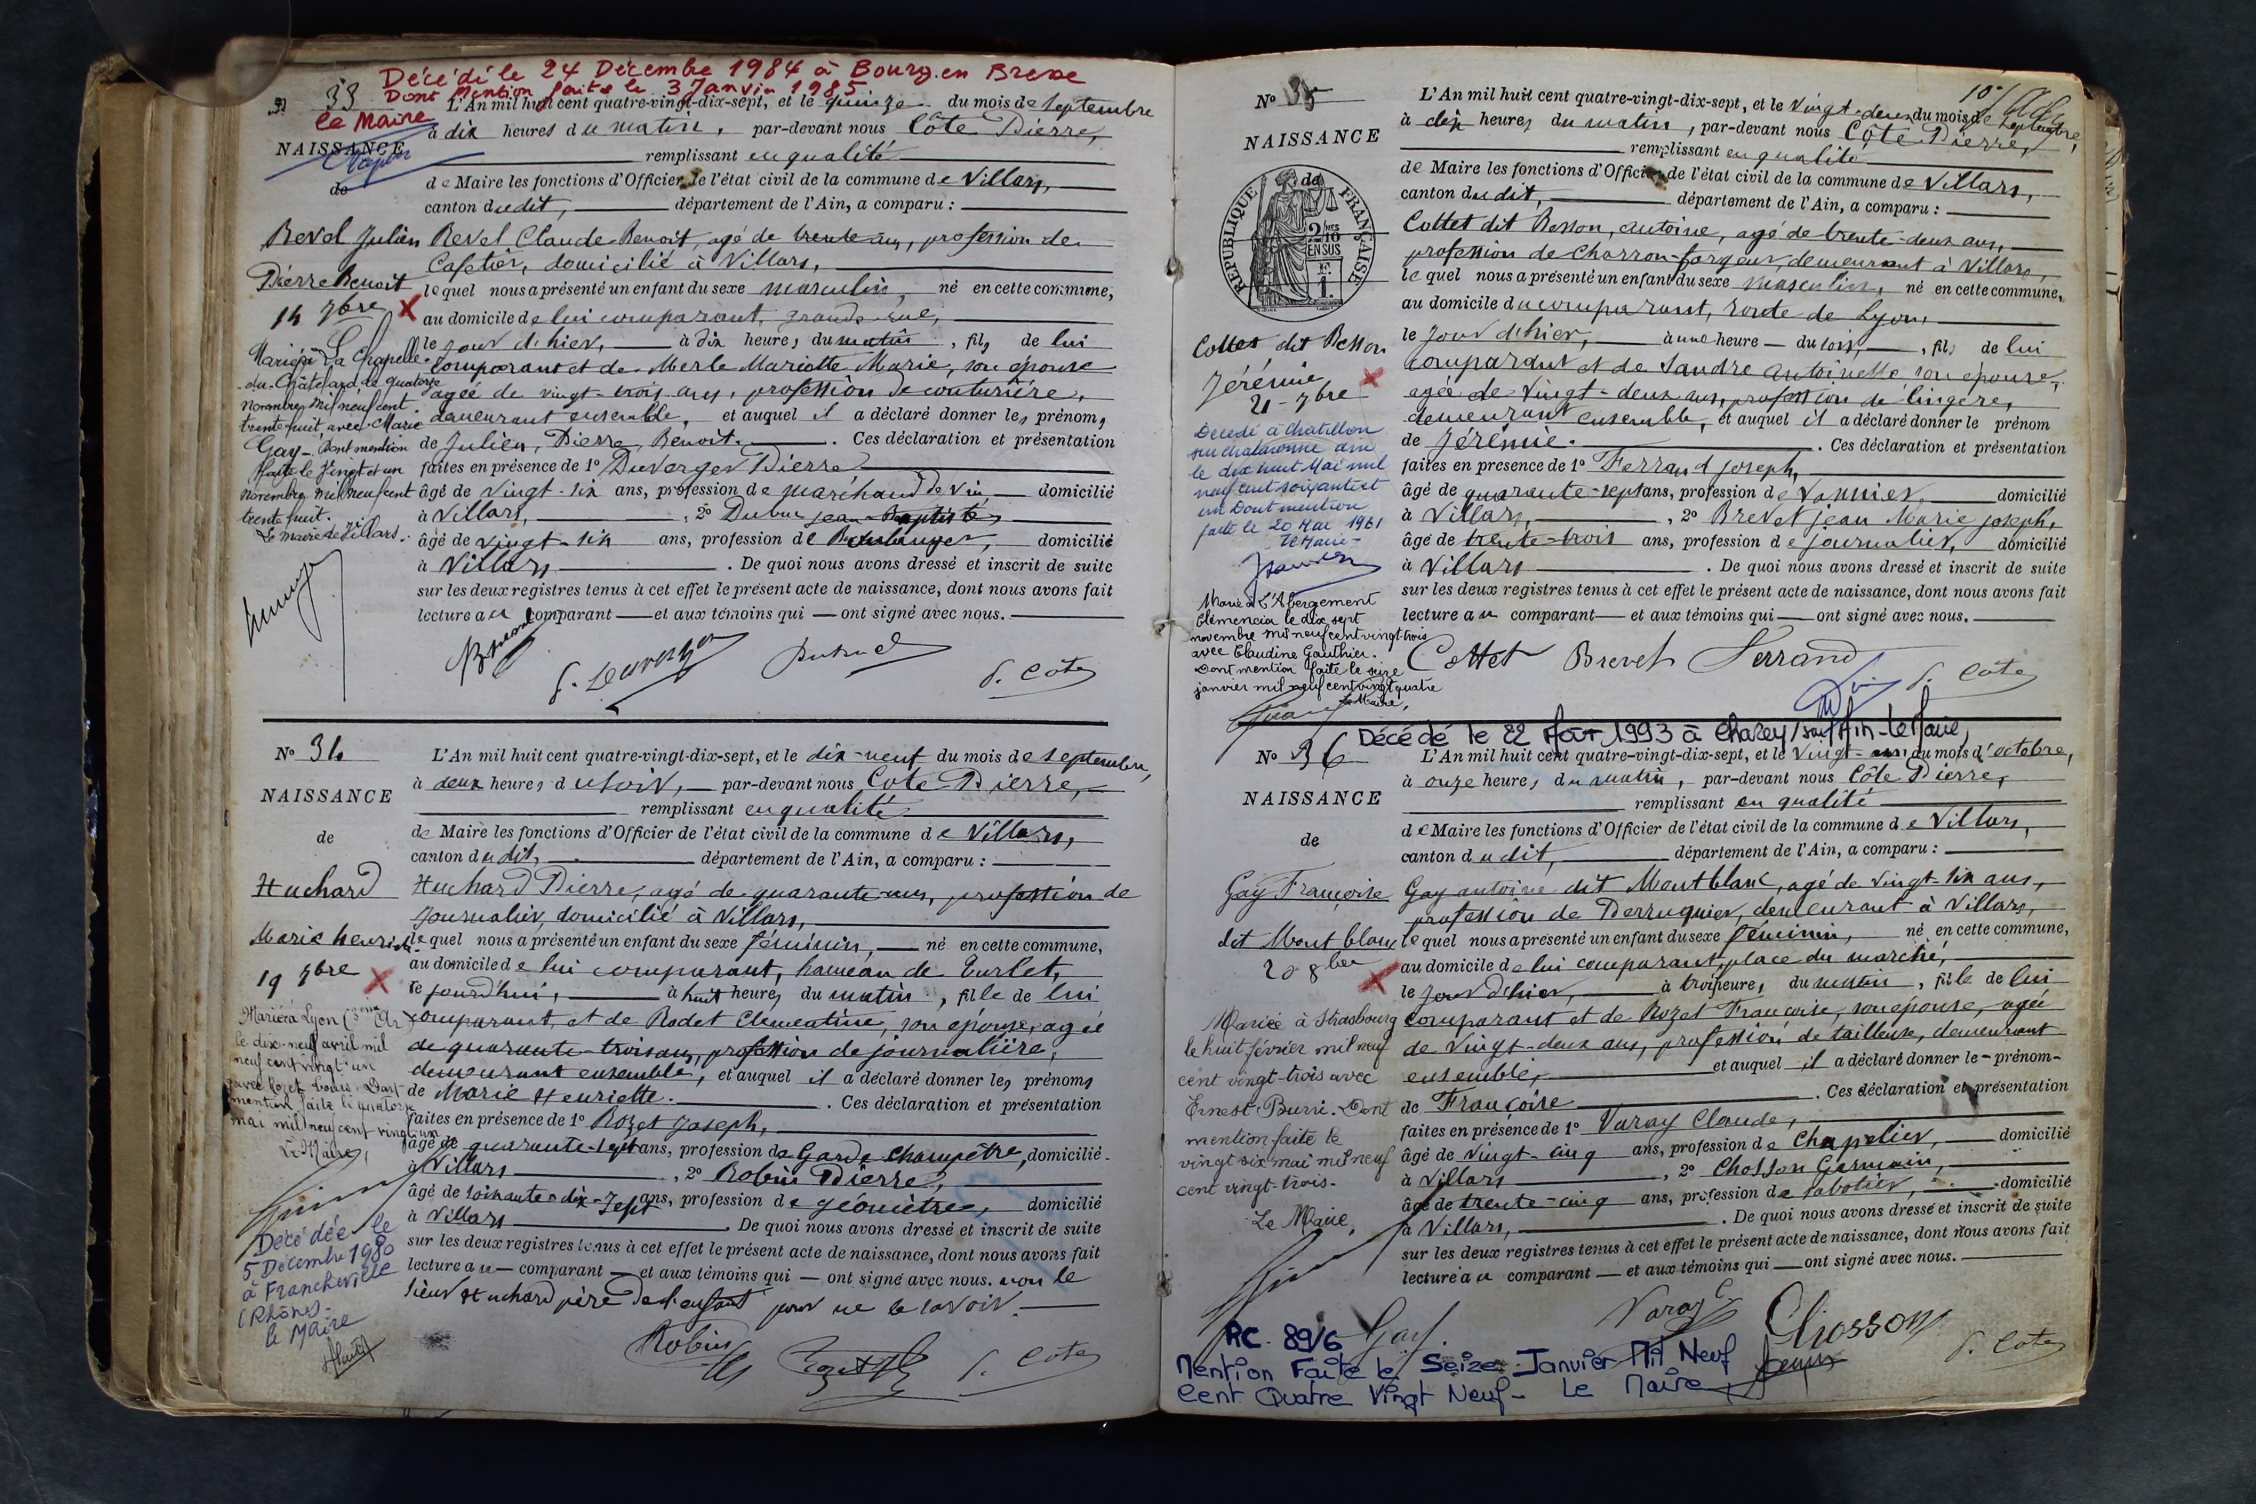 Décédé le 24 Décembre 1984 à Bourg en Bresse
Dont Mention faite le 3 Janvier 1985
le Maire
N° 33
NAISSANCE
de
Revel Julien
Pierre Benoit
14 7bre
Marié à La Chapelle-
-du-Châtelard le quatorze
Novembre mil neuf cent
trente huit avec Marie
Gay-. Dont mention
faite le Vingt et un
novembre mil neuf cent
trente huit.
Le maire de Villars.
L'An mil huit cent quatre-vingt-dix-sept, et le quinze du mois de septembre
à dix heures du matin, par-devant nous Côte Pierre,
remplissant en qualité
de Maire les fonctions d'Officier de l'état civil de la commune de Villars,
canton dudit, département de l'Ain, a comparu :
Revel Claude Benoit, agé de trente ans, profession de
Cafetier, domicilié à Villars,
lequel nous a présenté un enfant du sexe masculin, né en cette commune,
au domicile de lui comparant, grande rue,
le jour d'hier, à dix heures du matin, fils de lui
comparant et de Merle Mariette Marie, son épouse
agée de vingt-trois ans, profession de couturière,
demeurant ensemble, et auquel il a déclaré donner les prénoms
de Julien, Pierre, Benoit. Ces déclaration et présentation
faites en présence de 1° Duverger Pierre
âgé de vingt-six ans, profession de marchand de vin domicilié
à Villars, 2° Dubuc jean-Baptiste,
âgé de vingt-six ans, profession de Boulanger, domicilié
à Villars. De quoi nous avons dressé et inscrit de suite
sur les deux registres tenus à cet effet le présent acte de naissance, dont nous avons fait
lecture au comparant et aux témoins qui ont signé avec nous.
P. Côte
N° 34
NAISSANCE
de
Huchard
Marie henriette
19 7bre
Mariée à Lyon (3ème Ar
le dix-neuf avril mil
neuf cent vingt-un
Dont
mention faite le quatorze
mai mil neuf cent vingt un
Le Maire,
Décédée le
5 Décembre 1980
à Francheville
(Rhône)-
le Maire
L'An mil huit cent quatre-vingt-dix-sept, et le dix-neuf du mois de septembre,
à deux heures du soir, par-devant nous Côte Pierre,
remplissant en qualité
de Maire les fonctions d'Officier de l'état civil de la commune de Villars,
canton dudit, département de l'Ain, a comparu :
Huchard Pierre, agé de quarante ans, profession de
journalier, domicilié à Villars,
lequel nous a présenté un enfant du sexe féminin, né en cette commune,
au domicile de lui comparant, hameau de Turlet,
le jourd'hui, à huit heures du matin, fille de lui
comparant et de Rodet Clémentine, son épouse, agée
de quarante-trois ans, profession de journalière,
demeurant ensemble, et auquel il a déclaré donner les prénoms
de Marie Henriette. Ces déclaration et présentation
faites en présence de 1° Rozet Joseph,
âgé de quarante-sept ans, profession de Garde Champêtre, domicilié
à Villars, 2° Robin Pierre,
âgé de soixante-dix-sept ans, profession de géomètre, domicilié
à Villars. De quoi nous avons dressé et inscrit de suite
sur les deux registres tenus à cet effet le présent acte de naissance, dont nous avons fait
lecture au comparant et aux témoins qui ont signé avec nous. non le
sieur Huchard père de l'enfant pour ne le savoir.
Robin
P. Côte
N° 35
NAISSANCE
de
REPUBLIQUE FRANÇAISE
2/10
EN SUS
Cottet dit Besson
Jérémie
21-7bre
Décédé à Chatillon
sur chalaronne ain
le dix huit Mai mil
neuf cent soixante et
un Dont mention
faite le 20 Mai 1961
Le Maire-
Marié à L'Abergement
Clémencia le dix sept
novembre mil neuf cent vingt-trois
avec Claudine Gauthier.
Dont mention faite le seize
janvier mil neuf cent vingt quatre
Le Maire,
L'An mil huit cent quatre-vingt-dix-sept, et le vingt-deux du mois de septembre,
à dix heures du matin, par-devant nous Côte Pierre,
remplissant en qualité
de Maire les fonctions d'Officier de l'état civil de la commune de Villars,
canton dudit, département de l'Ain, a comparu :
Cottet dit Besson, antoine, agé de trente-deux ans,
profession de Charron-forgeur, demeurant à Villars,
lequel nous a présenté un enfant du sexe masculin, né en cette commune,
au domicile du comparant, route de Lyon,
le jour d'hier, à une heure du soir, fils de lui
comparant et de Sandre antoinette son épouse,
agée de vingt-deux ans, profession de lingère,
demeurant ensemble, et auquel il a déclaré donner le prénom
de Jérémie. Ces déclaration et présentation
faites en présence de 1° Ferrand joseph,
âgé de quarante-sept ans, profession de Vannier, domicilié
à Villars, 2° Brevet jean Marie joseph,
âgé de trente-trois ans, profession de journalier, domicilié
à Villars. De quoi nous avons dressé et inscrit de suite
sur les deux registres tenus à cet effet le présent acte de naissance, dont nous avons fait
lecture au comparant et aux témoins qui ont signé avec nous.
Cottet Brevet Ferrand P. Côte
Décédé le 22 Août 1993 à Chazey/sur/Ain- Le Maire,
N° 36
NAISSANCE
de
Gay Françoise
dit Mont blanc
20 8bre
Mariée à Strasbourg
le huit février mil neuf
cent vingt-trois avec
Ernest Burri. Dont
mention faite le
vingt six mai mil neuf
cent vingt-trois.
Le Maire,
L'An mil huit cent quatre-vingt-dix-sept, et le vingt-un du mois d'octobre,
à onze heures du matin, par-devant nous Côte Pierre,
remplissant en qualité
de Maire les fonctions d'Officier de l'état civil de la commune de Villars,
canton dudit, département de l'Ain, a comparu :
Gay antoine dit Montblanc, agé de vingt-six ans,
profession de Perruquier, demeurant à Villars,
lequel nous a présenté un enfant du sexe féminin, né en cette commune,
au domicile de lui comparant, place du marché,
le jour d'hier, à trois heures du matin, fille de lui
comparant et de Rozet Françoise, son épouse, agée
de vingt-deux ans, profession de tailleuse, demeurant
ensemble, et auquel il a déclaré donner le prénom
de Françoise. Ces déclaration et présentation
faites en présence de 1° Varay Claude,
âgé de vingt-cinq ans, profession de Chapelier, domicilié
à Villars, 2° Chosson Germain,
âgé de trente-cinq ans, profession de sabotier, domicilié
à Villars,. De quoi nous avons dressé et inscrit de suite
sur les deux registres tenus à cet effet le présent acte de naissance, dont nous avons fait
lecture au comparant et aux témoins qui ont signé avec nous.
Gay. Varay C. Chosson P. Côte
RC. 89/6
Mention Faite le Seize Janvier Mil Neuf
Cent Quatre Vingt Neuf- Le Maire,